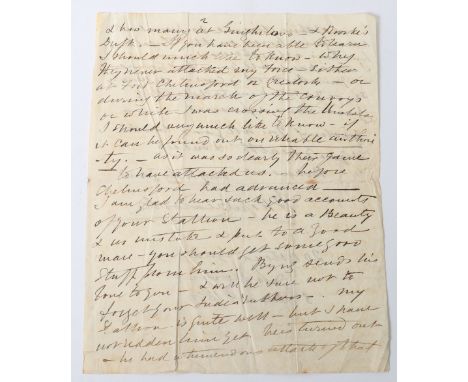 & how many? at Ginghilovo – & Rorke's
Drift. – If you have been able to learn
I should much like to know – Why
they never attacked my Force – either
at Fort Chelmsford or Crealock – or
during the march of the Convoys
or while I was crossing the Umlalazi
I should very much like to know – if
it can be found out on reliable authori
-ty – as it was so clearly their game
to have attacked us – before
Chelmsford had advanced –
I am glad to hear such good accounts
of your Stallion – he is a Beauty
& no mistake & put to a good
mare – you should get some good
Stuff from him. Byng sends his
love to you – & will be sure not to
forget your India rubbers –. My
Stallion is quite well – but I have
not ridden him yet he is turned out
– he had a tremendous attack of that